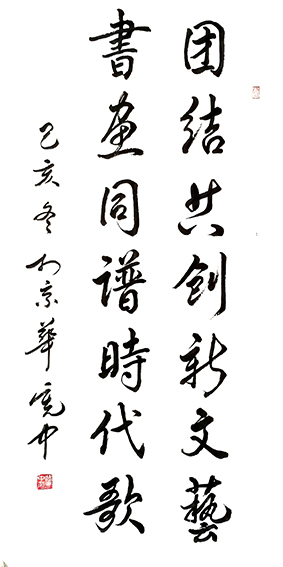 团结共创新文藝
書画同谱時代歌
己亥冬于京華寬中